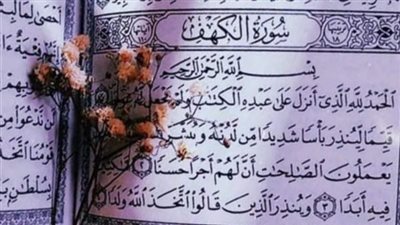 سُورَةُ الكَهْفِ
بِسْمِ اللَّهِ الرَّحْمَٰنِ الرَّحِيمِ
الْحَمْدُ لِلَّهِ الَّذِي أَنزَلَ عَلَىٰ عَبْدِهِ الْكِتَٰبَ وَلَمْ يَجْعَل لَّهُ
قَيِّمًا لِّيُنذِرَ بَأْسًا شَدِيدًا مِّن لَّدُنْهُ وَيُبَشِّرَ
يَعْمَلُونَ الصَّٰلِحَٰتِ أَنَّ لَهُمْ أَجْرًا حَسَنًا ٢
فِيهِ أَبَدًا ٣ وَيُنذِرَ الَّذِينَ قَالُوا اتَّخَذَ اللَّهُ وَلَدًا
أَحْصَىٰ لِمَا
لَن نَّدْعُوَا مِن
قَوْمُنَا اتَّخَذُ
بِسُلْطَٰنٍ